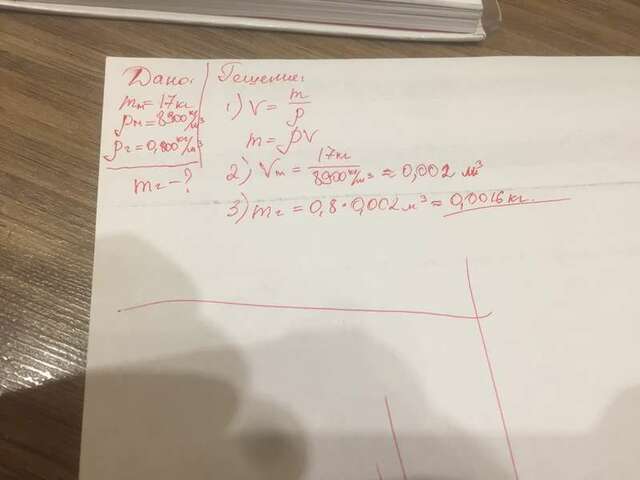 Дано:
mм = 17кг
ρм = 8900 кг/м³
ρг = 0,800 кг/м³
mг - ?
Решение:
1) V = m/ρ
m = ρV
2) Vм = 17кг/8900 кг/м³ ≈ 0,002 м³
3) mг = 0,8 · 0,002 м³ ≈ 0,0016 кг.